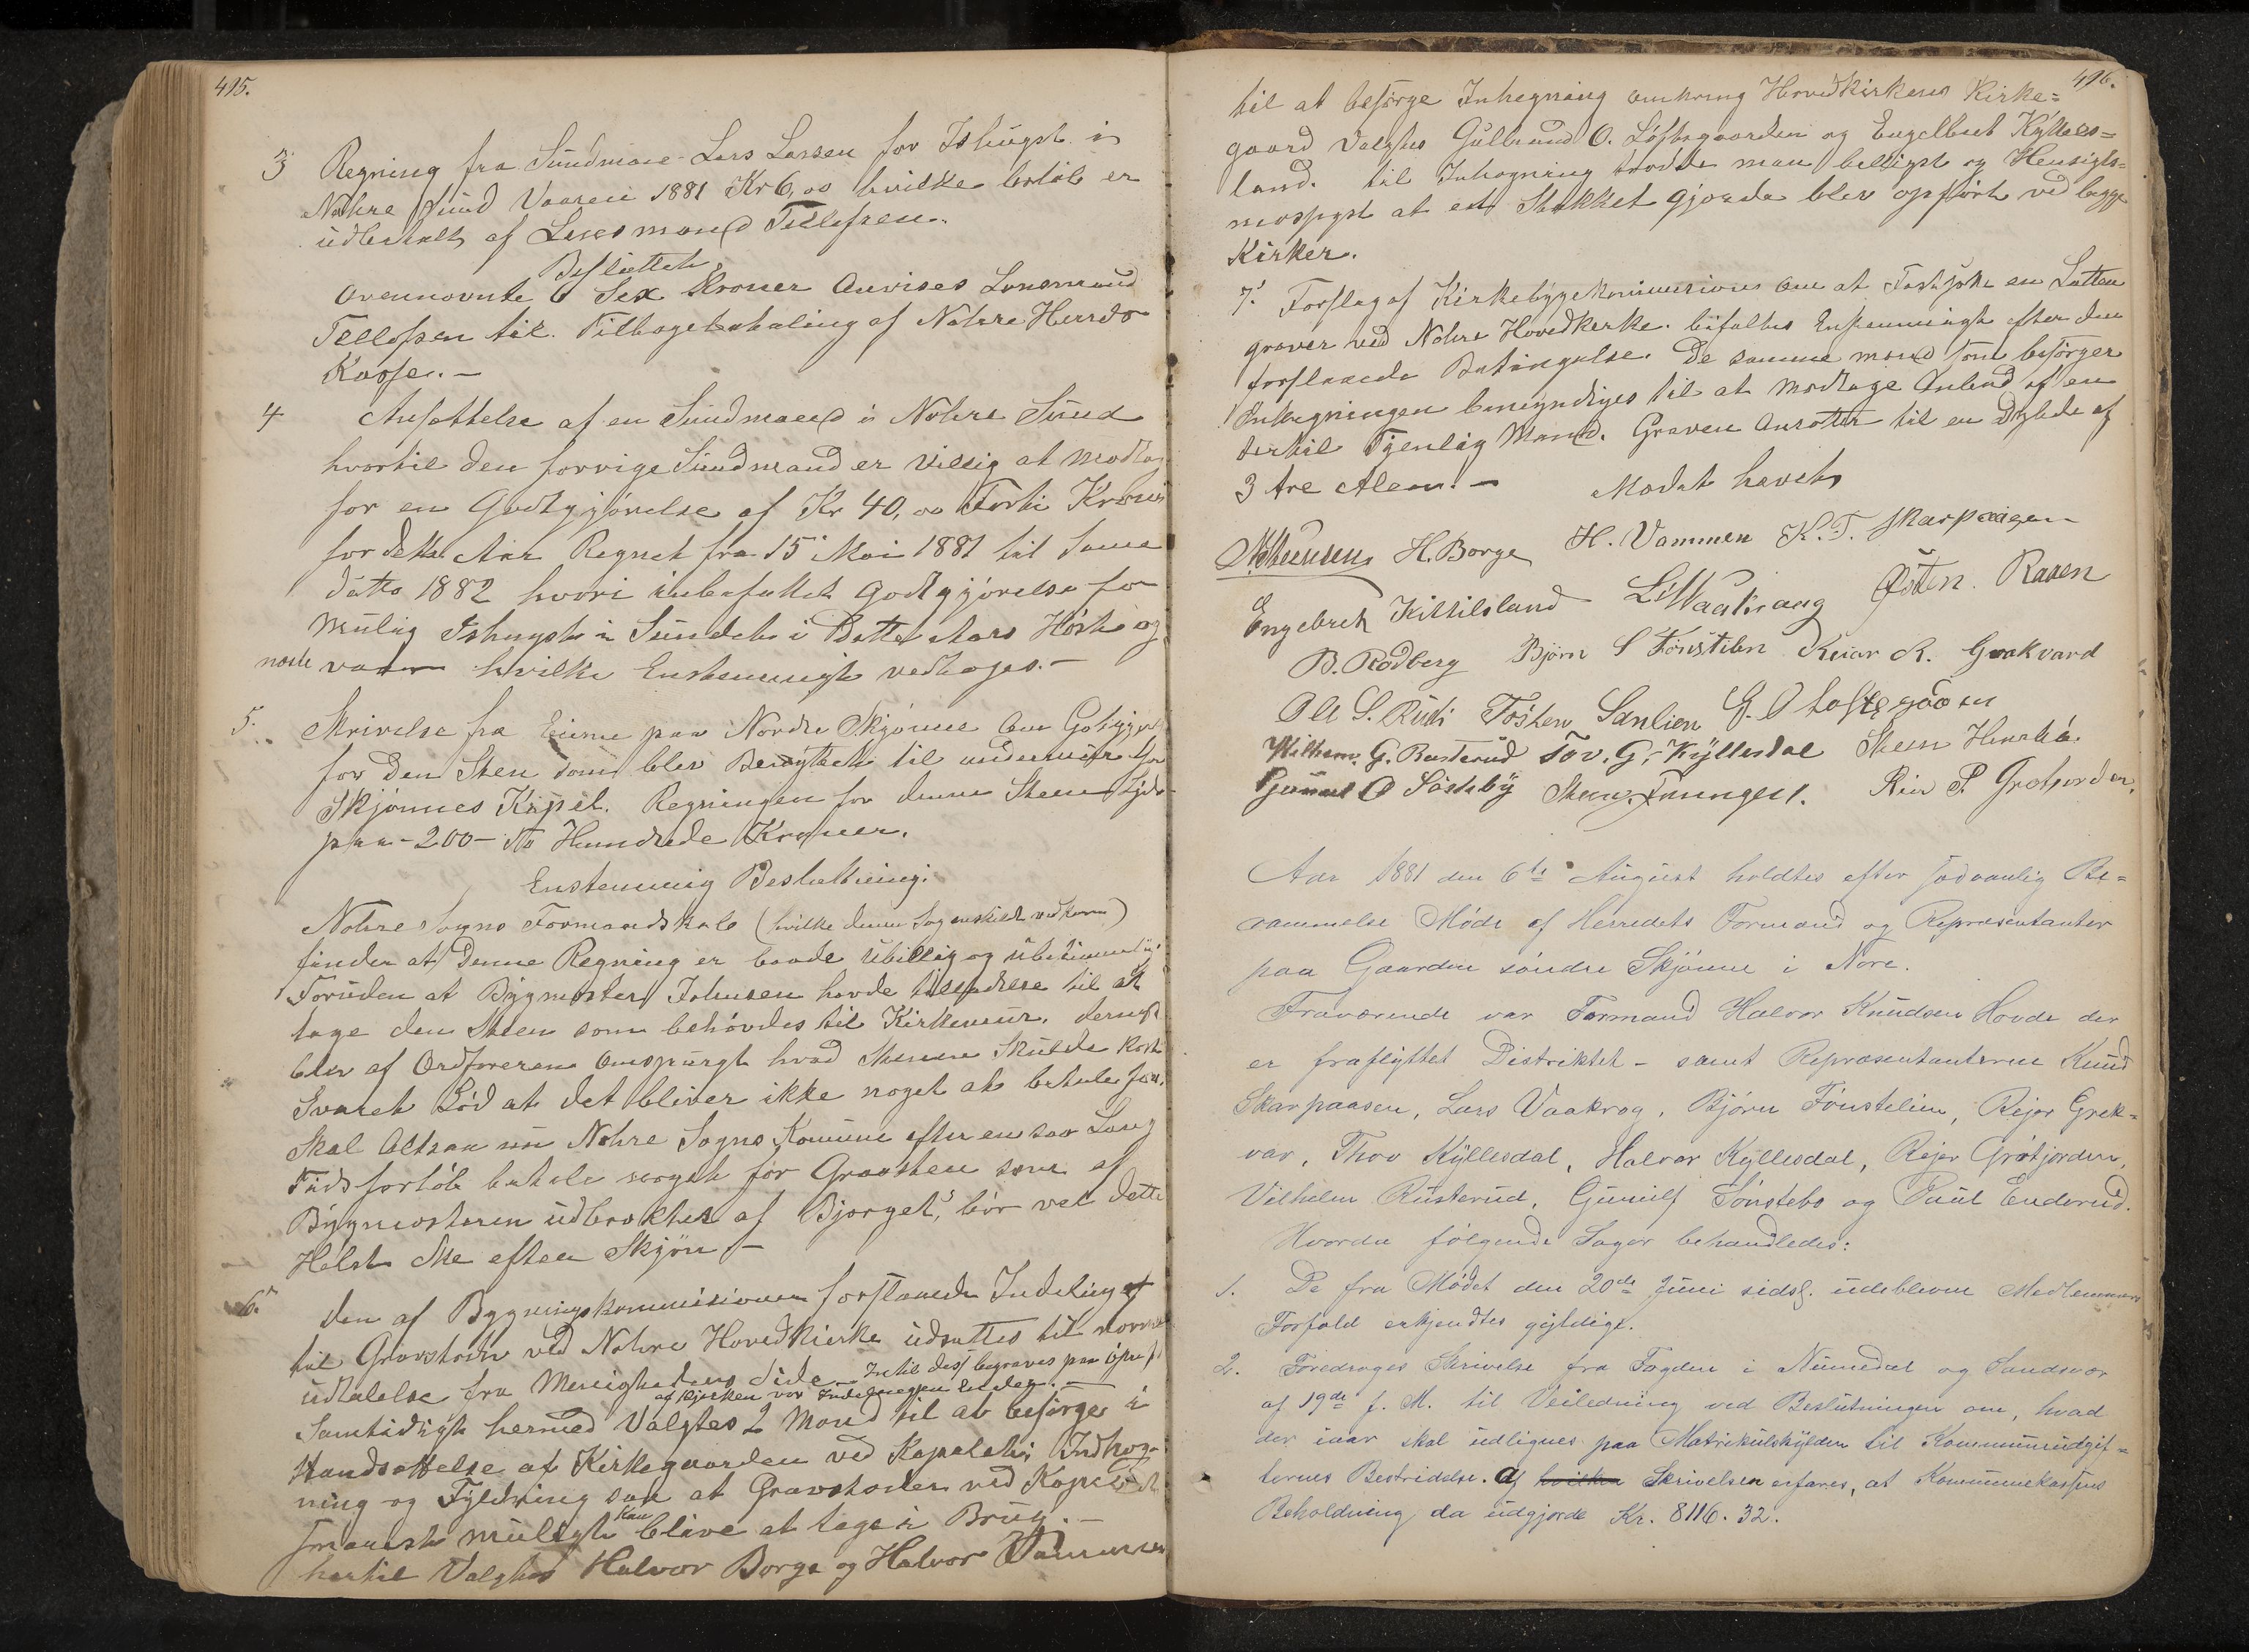 495.
3 Regning fra Sundman Lars Larsen for Ishugst i
Nohre Sund Vaaren 1881 Kr 6,00 hvilke beløb er
udbetalt af Lensmand Tellefsen.
Besluttet
Ovennevnte 6 Sex Kroner Anvises Lensmand
Tellefsen til Tilbagebetaling af Nohre Herreds
Kasse. —
4 Ansættelse af en Sundmand i Nohre Sund
hvortil den forrige Sundmand er villig at modtag
for en Godtgjørelse af Kr 40,00 Forti Kroner
for dette Aar Regnet fra 15 Mai 1881 til Samme
datto 1882 hvori inbefattet godtgjørelse for
mulig Ishugst i Sundet i Dette Aars Høst og
næste vaar hvilke Enstemmigt vedtages. —
5. Skrivelse fra Einer paa Nordre Skjønne om Gotgjør
for den Sten som blev Benyttet til undermur for
Skjønnes Kapel. Regningen for denne Steen Lyder
paa - 200 - To Hundrede Kroner.
Enstemmig Beslutning:
Nohre Sogns Formandskab (hvilke denne Sag enskilt vedkom)
finder at Denne Regning er baade Ubillig og ubetimmelig
Foruden at Bygmester Johnsen havde tilladelse til at
tage den Steen som behøvdes til Kirkemur, dernest
blev af Ordføreren omspurgt hvad Stenen Skulde koste
Svaret Lød at det bliver ikke noget at betale for.
Skal Altsaa nu Nohre Sogns Komune efter en saa Lang
Tids forløb betale noget for Graasten som af
Bygmesteren udbroktes af Bjerget, bør vel dette
Helst Ske efter Skjøn —
6. Den af Bygningskommisionen forslaaede Indeling af
til Gravsteder ved Nohre Hovedkierke udsættes til nærmere
udtalelse fra Menighedens Side. — Intil dess begraves paa øpre s
af Kjerken var Indelingen Leder. —
Samtidigt hermed Valgtes 2 Mænd til at besørge i
standsættelse af Kirkegaarden ved Kapelet; Indheg-
ning og Fyldning saa at Gravsteder ved Kapelet
snarest muligt kan blive at tage i Brug. —
hertil Valgtes Halvor Borge og Halvor Vammen
496.
til at besørge Inhegning omkring Hovedkirkens Kirke=
gaard valgtes Gulbrand O. Løftsgaarden og Engelbret Kittels=
land. til Inhegning trodde man billigst og Hensigts=
mæsigst at et Stakket gjærde blev opført ved begge
Kirker.
7. Forslag af Kirkebygekommisionen om at Fastsætte en Sætten
graver ved Nohre Hovedkerke. bifaltes Enstemmigt efter den
forslaaede Betingelse. De samme mænd som besørger
Inhegningen bemyndiges til at modtage Anbud af en
dertil Tjenlig Mand. Graven Ansætter til en Dybde af
3 tre Alen. — Mødet hævet
H. Borge H. Vammen K. T. Skarpaasen
Engebreth Kittilsland L. Waakraag Østen Raaen
B. Rodberg Bjørn S Fønstilen Reiar R. Grækvard
Ole S. Rudi Tosten Sønlien G. O Løftsgaaden
Wilhem. G. Rusterud Tov. G. Kyllesdal Steen
Gunnul O Søsteby Steen Tveunges. Reier P. Grøtjorden.
Aar 1881 den 6te August holdtes efter sædvanlig Be=
rammelse Møde af Herredets Formænd og Repræsentanter
paa Gaarden søndre Skjønne i Nore.
Fraværende var Formand Halvor Knudsen Hovde der
er fraflyttet Distriktet — samt Repræsentanterne Knud
Skarpaasen, Lars Vaakrag, Bjørn Fønstelien, Rejer Græk=
var, Thov Kyllesdal, Halvor Kyllesdal, Rejer Grøtjorden,
Vilhelm Rusterud, Gunulf Sønstebø og Paul Enderud.
Hvorda følgende Sager behandledes:
1. De fra Mødet den 20de Juni sidsl. udeblevne Medlemmers
Forfald erkjendtes gyldige.
2. Foredroges Skrivelse fra Fogden i Numedal og Sandsvær
af 19de f. M. til Veiledning ved Beslutningen om, hvad
der iaar skal udlignes paa Matrikulskylden til Kommuneudgif=
ternes Bestridelse. Af hvilken Skrivelsen erfares, at Kommunekassens
Beholdning da udgjorde Kr. 8116.32.